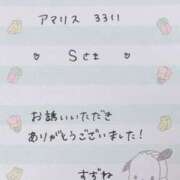 アマリス 3311
♡ Sさま ♡
お誘いいただき
ありがとうございました!
すずね